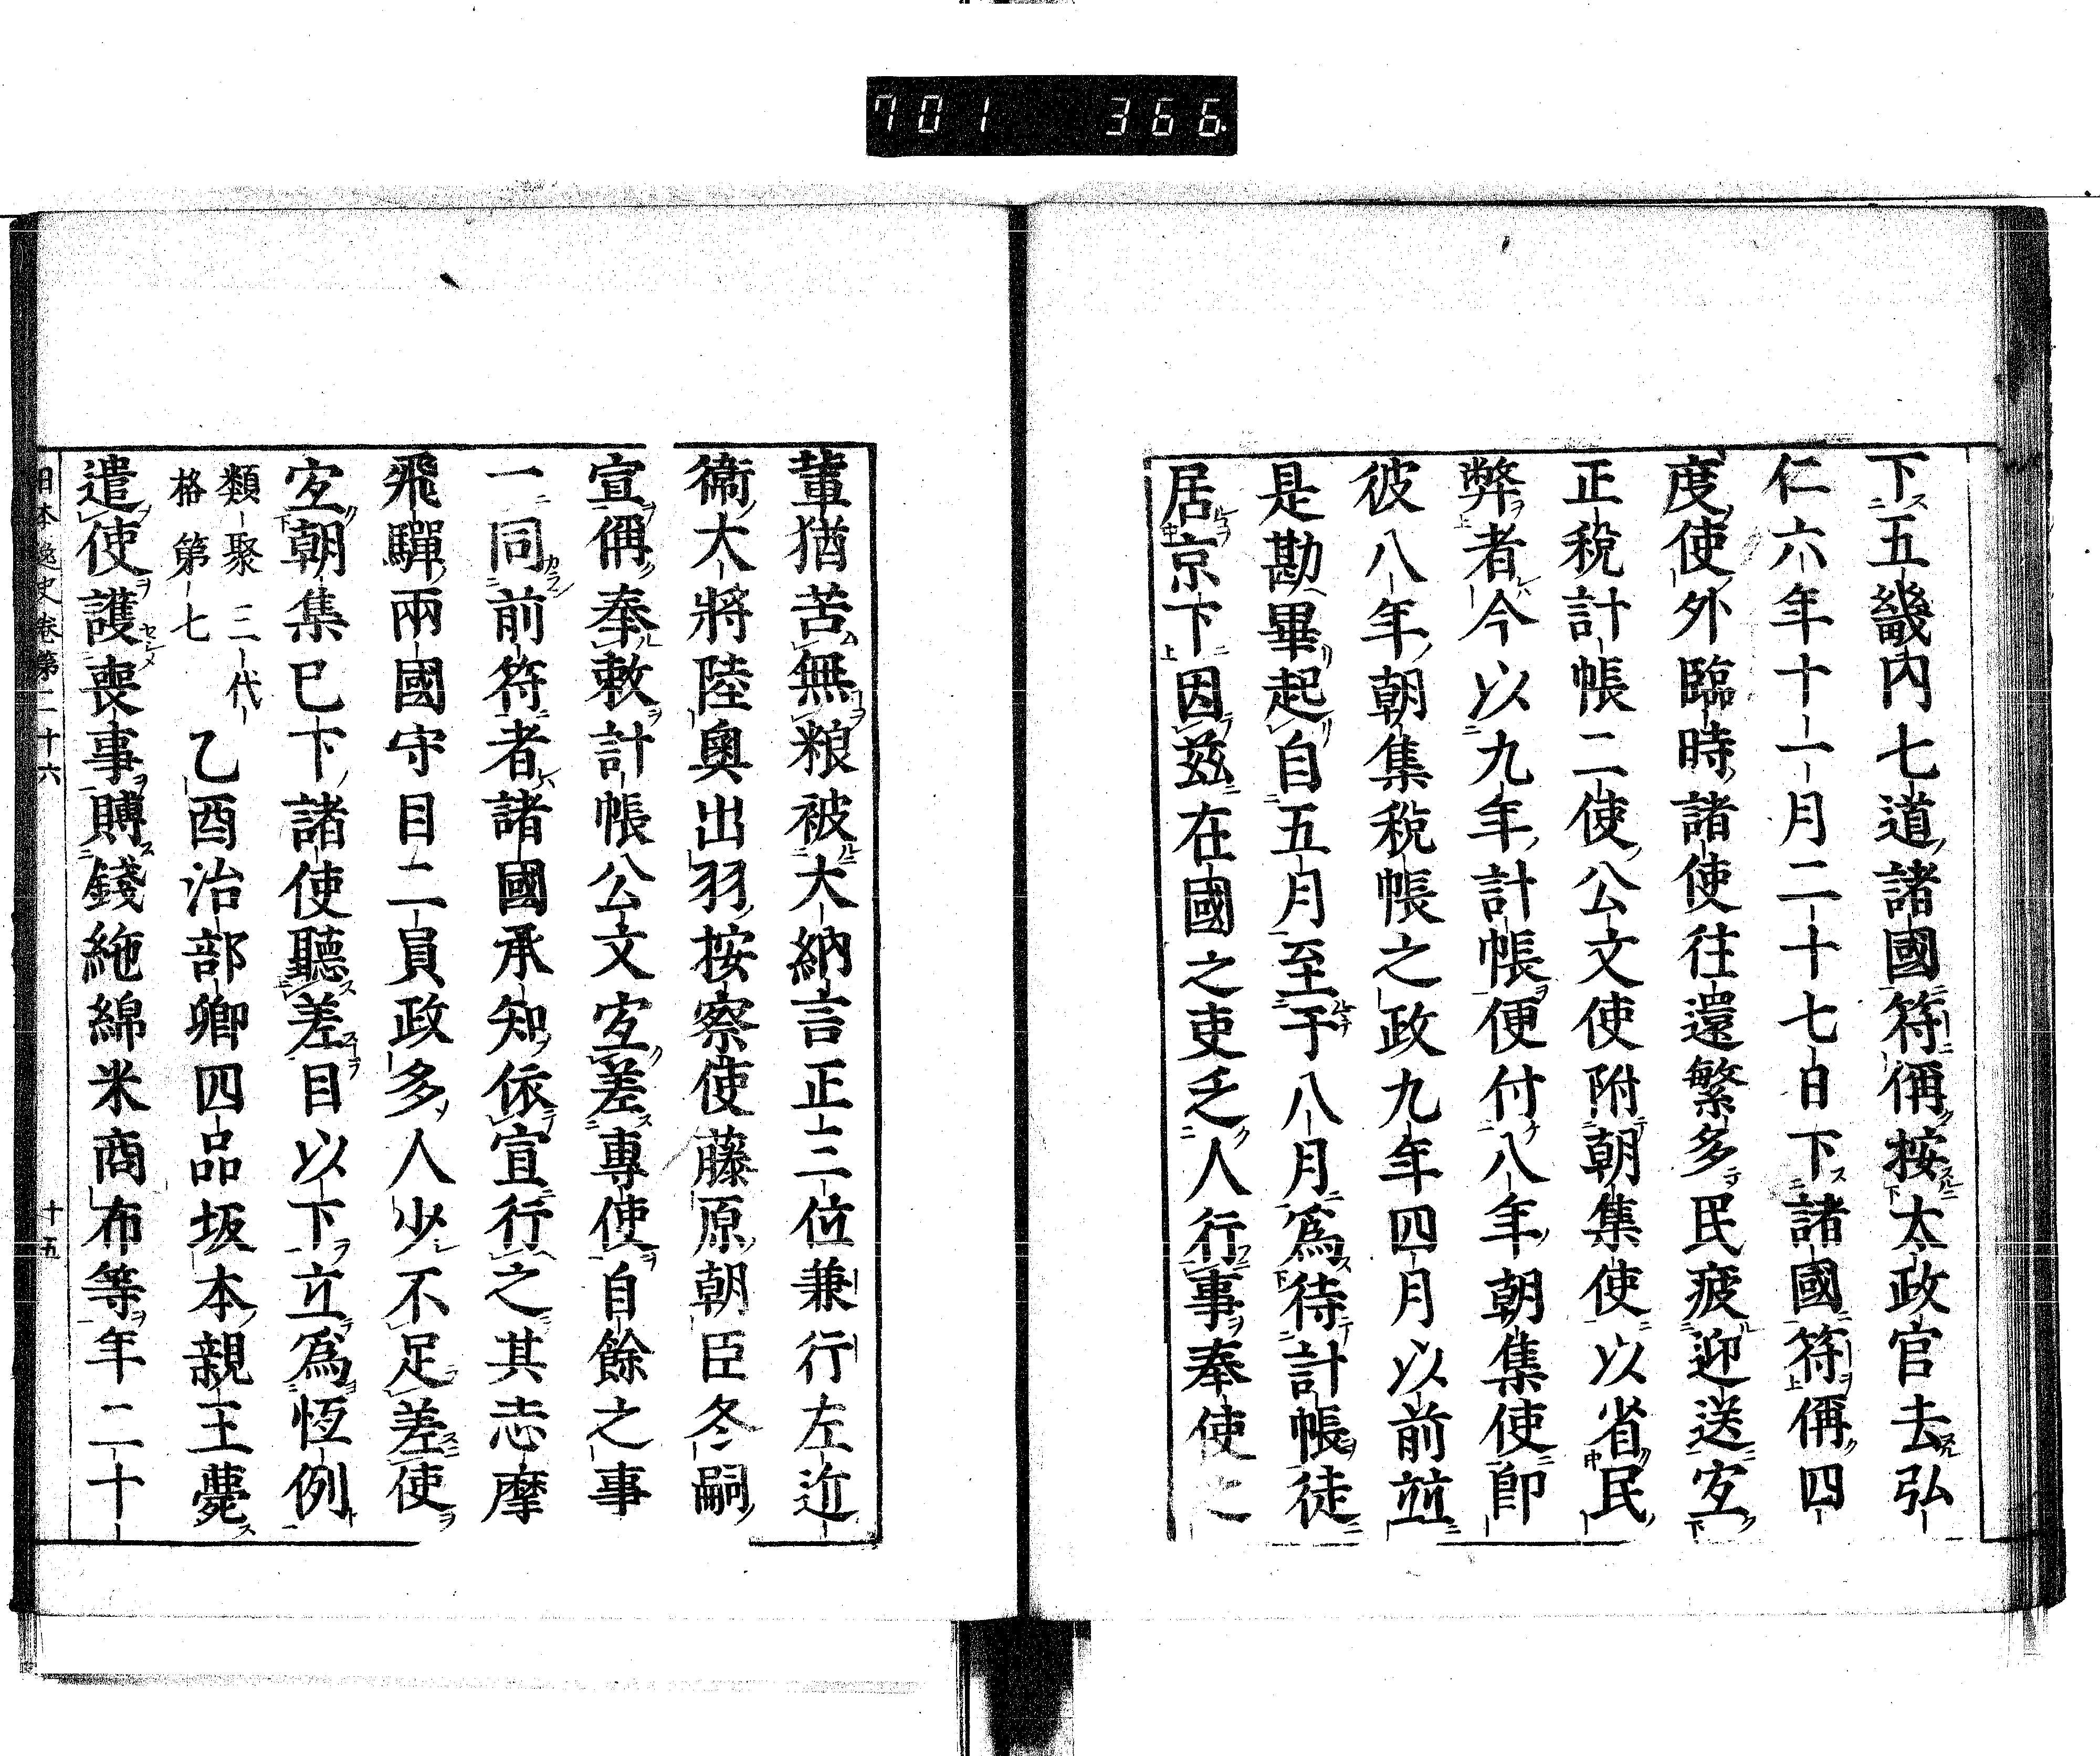 701 366
下五畿內七道諸國符偁按太政官去弘
仁六年十一月二十七日下諸國符偁四
度使外臨時諸使往還繁多民疲迎送宜
正稅計帳二使公文使附朝集使以省民
弊者今以九年計帳便付八年朝集使卽
彼八年朝集稅帳之政九年四月以前並
是勘畢起自五月至于八月爲待計帳徒
居京下因茲在國之吏乏人行事奉使
輩猶苦無粮被大納言正三位兼行左近
衞大將陸奧出羽按察使藤原朝臣冬嗣
宣偁奉敕計帳公文宜差專使自餘之事
一同前符者諸國承知依宣行之其志摩
飛驒兩國守目二員政多人少不足差使
宜朝集已下諸使聽差目以下立爲恆例
類聚三代
格第七
乙酉治部卿四品坂本親王薨
遣使護喪事賻錢絁綿米商布等年二十
日本逸史卷第二十六 十五